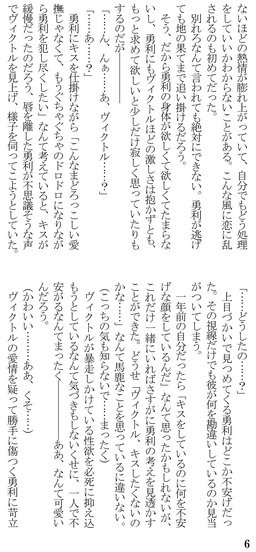 ないほどの熱情が膨れ上がっていて、自分でもどう処理
をしていいかわからないことがある。こんな風に恋に乱
されるのも初めてだった。
別れろなんて言われても絶対にできない。勇利が逃げ
ても地の果てまで追い掛けるだろう。
そう、だから勇利の身体が欲しくて欲しくてたまらな
いし、勇利にもヴィクトルほどの激しさは抱かずとも、
もっと求めて欲しいと少しだけ寂しく思っていたりも
するのだが――
「……ん、んぁ……あ、ヴィクトル……？」
「……あ……？」
勇利にキスを仕掛けながら「こんなまどろっこしい愛
撫じゃなくて、もうぐちゃぐちゃのドロドロになりなが
ら勇利を犯し尽くしたい」なんて考えていると、キスが
緩慢だったのだろう、唇を離した勇利が不思議そうな声
でヴィクトルを見上げ、様子を伺ってこようとしていた。
「……どうしたの……？」
上目づかいで見つめてくる勇利はどこか不安げだっ
た。その視線だけでも彼が何を勘違いしているのか見当
がついてしまう。
一年前の自分だったら「キスをしているのに何を不安
げな顔をしているんだ」なんて思ったかもしれないが、
これだけ一緒にいればさすがに勇利の考えを見透かす
ことができた。どうせ「ヴィクトル、キスしたくないの
かな……」なんて馬鹿なことを思っているに違いない。
(こっちの気も知らないで……まったく)
ヴィクトルが暴走しかけている性欲を必死に抑え込
もうとしているなんて気づきもしないくせに、一人で不
安がるなんてまったく――ああ、なんて可愛い
んだろう。
(かわいい……ああ、くそ……)
ヴィクトルの愛情を疑って勝手に傷つく勇利に苛立
6